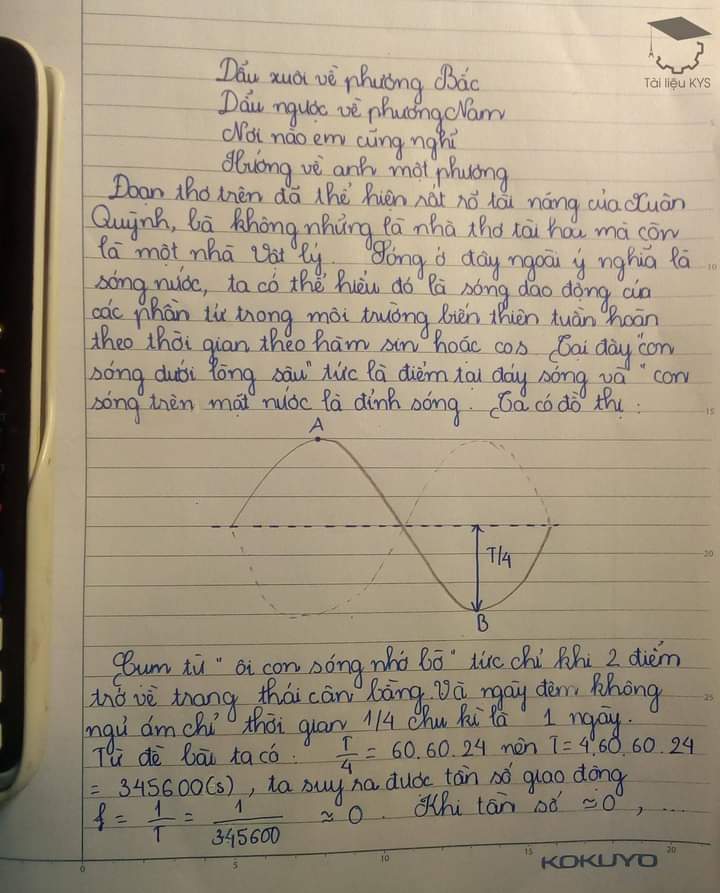 Tài liệu KYS
Dẩu xuôi về phương Bắc
Dẩu ngược về phương Nam
Nơi nào em cũng nghĩ
Hướng về anh một phương
Đoạn thơ trên đã thể hiện rất rõ tài năng của Xuân
Quỳnh, bà không những là nhà thơ tài hoa mà còn
là một nhà Vật lý. Sóng ở đây ngoài ý nghĩa là
sóng nước, ta có thể hiểu đó là sóng dao động của
các phần tử trong môi trường biến thiên tuần hoàn
theo thời gian theo hàm sin hoặc cos. Tại đây "con
sóng dưới lòng sâu" tức là điểm tại đáy sóng và "con
sóng trên mặt nước là đỉnh sóng. Ta có đồ thị:
A
T/4
B
Cụm từ "ôi con sóng nhớ bờ" tức chỉ khi 2 điểm
trở về trạng thái cân bằng. Và ngày đêm không
ngủ ám chỉ thời gian 1/4 chu kì là 1 ngày.
Từ đề bài ta có: T/4 = 60.60.24 nên T = 4.60.60.24
= 345600(s), ta suy ra được tần số giao động
f = 1/T = 1/345600 ≈ 0. Khi tần số ≈ 0, ...
10
15
20
25
0 5 10 15 20
KOKUYO